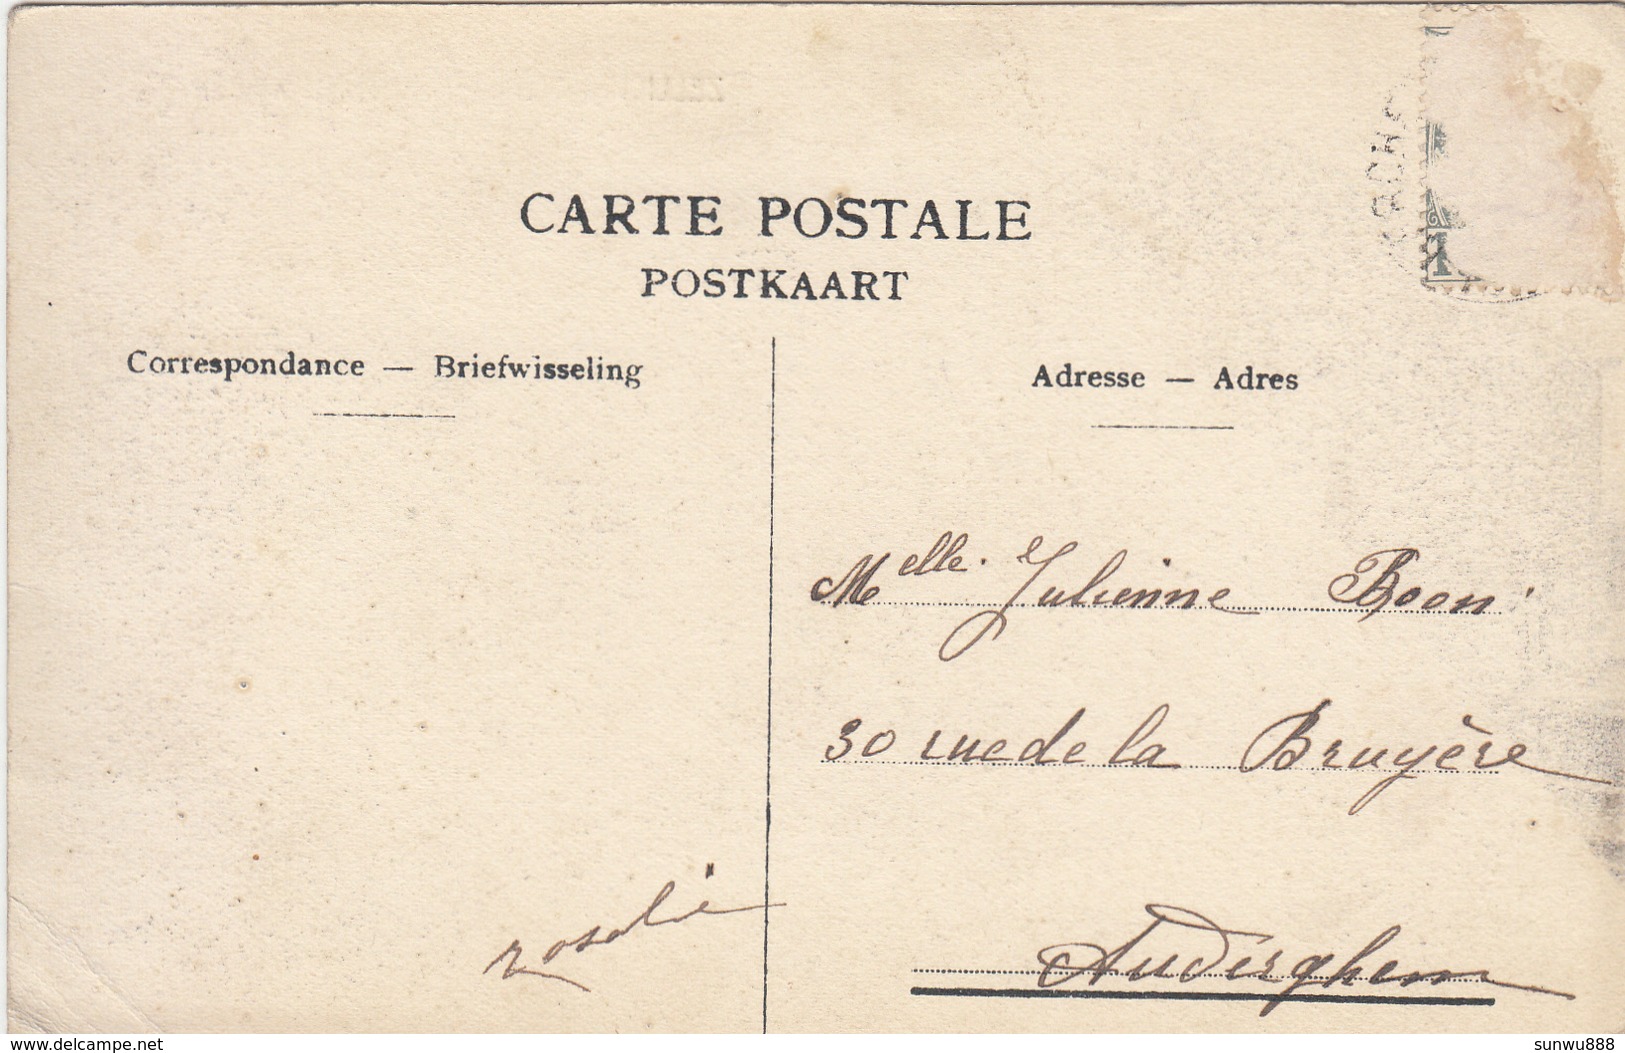 CARTE POSTALE
POSTKAART
Correspondance — Briefwisseling
Adresse — Adres
Melle. Julienne Boon
30 rue de la Bruyère
Auderghem
rosalie
1
delcampe.net
sunwu888